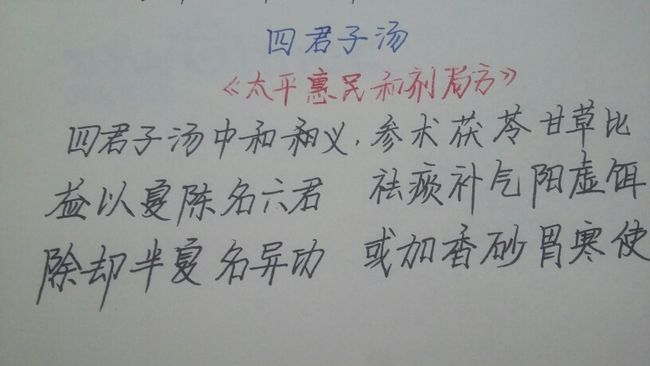 四君子汤
《太平惠民和剂局方》
四君子汤中和和义,参术茯苓甘草比
益以夏陈名六君 祛痰补气阳虚饵
除却半夏名异功 或加香砂胃寒使